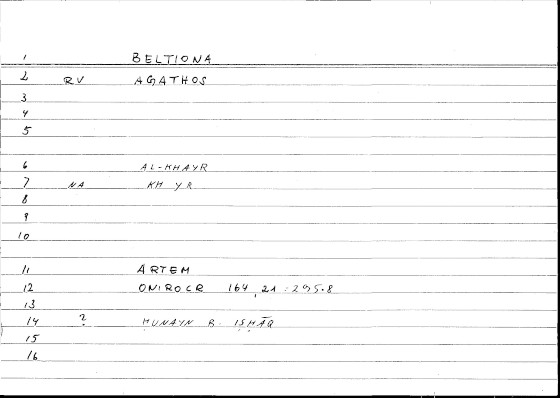 1 BELTIONA
2 RV AGATHOS
3
4
5
6 AL-KHAYR
7 NA KH YR
8
9
10
11 ARTEM
12 ONIROCR 164,21:295.8
13
14 ? ḤUNAYN B. ISḤĀQ
15
16